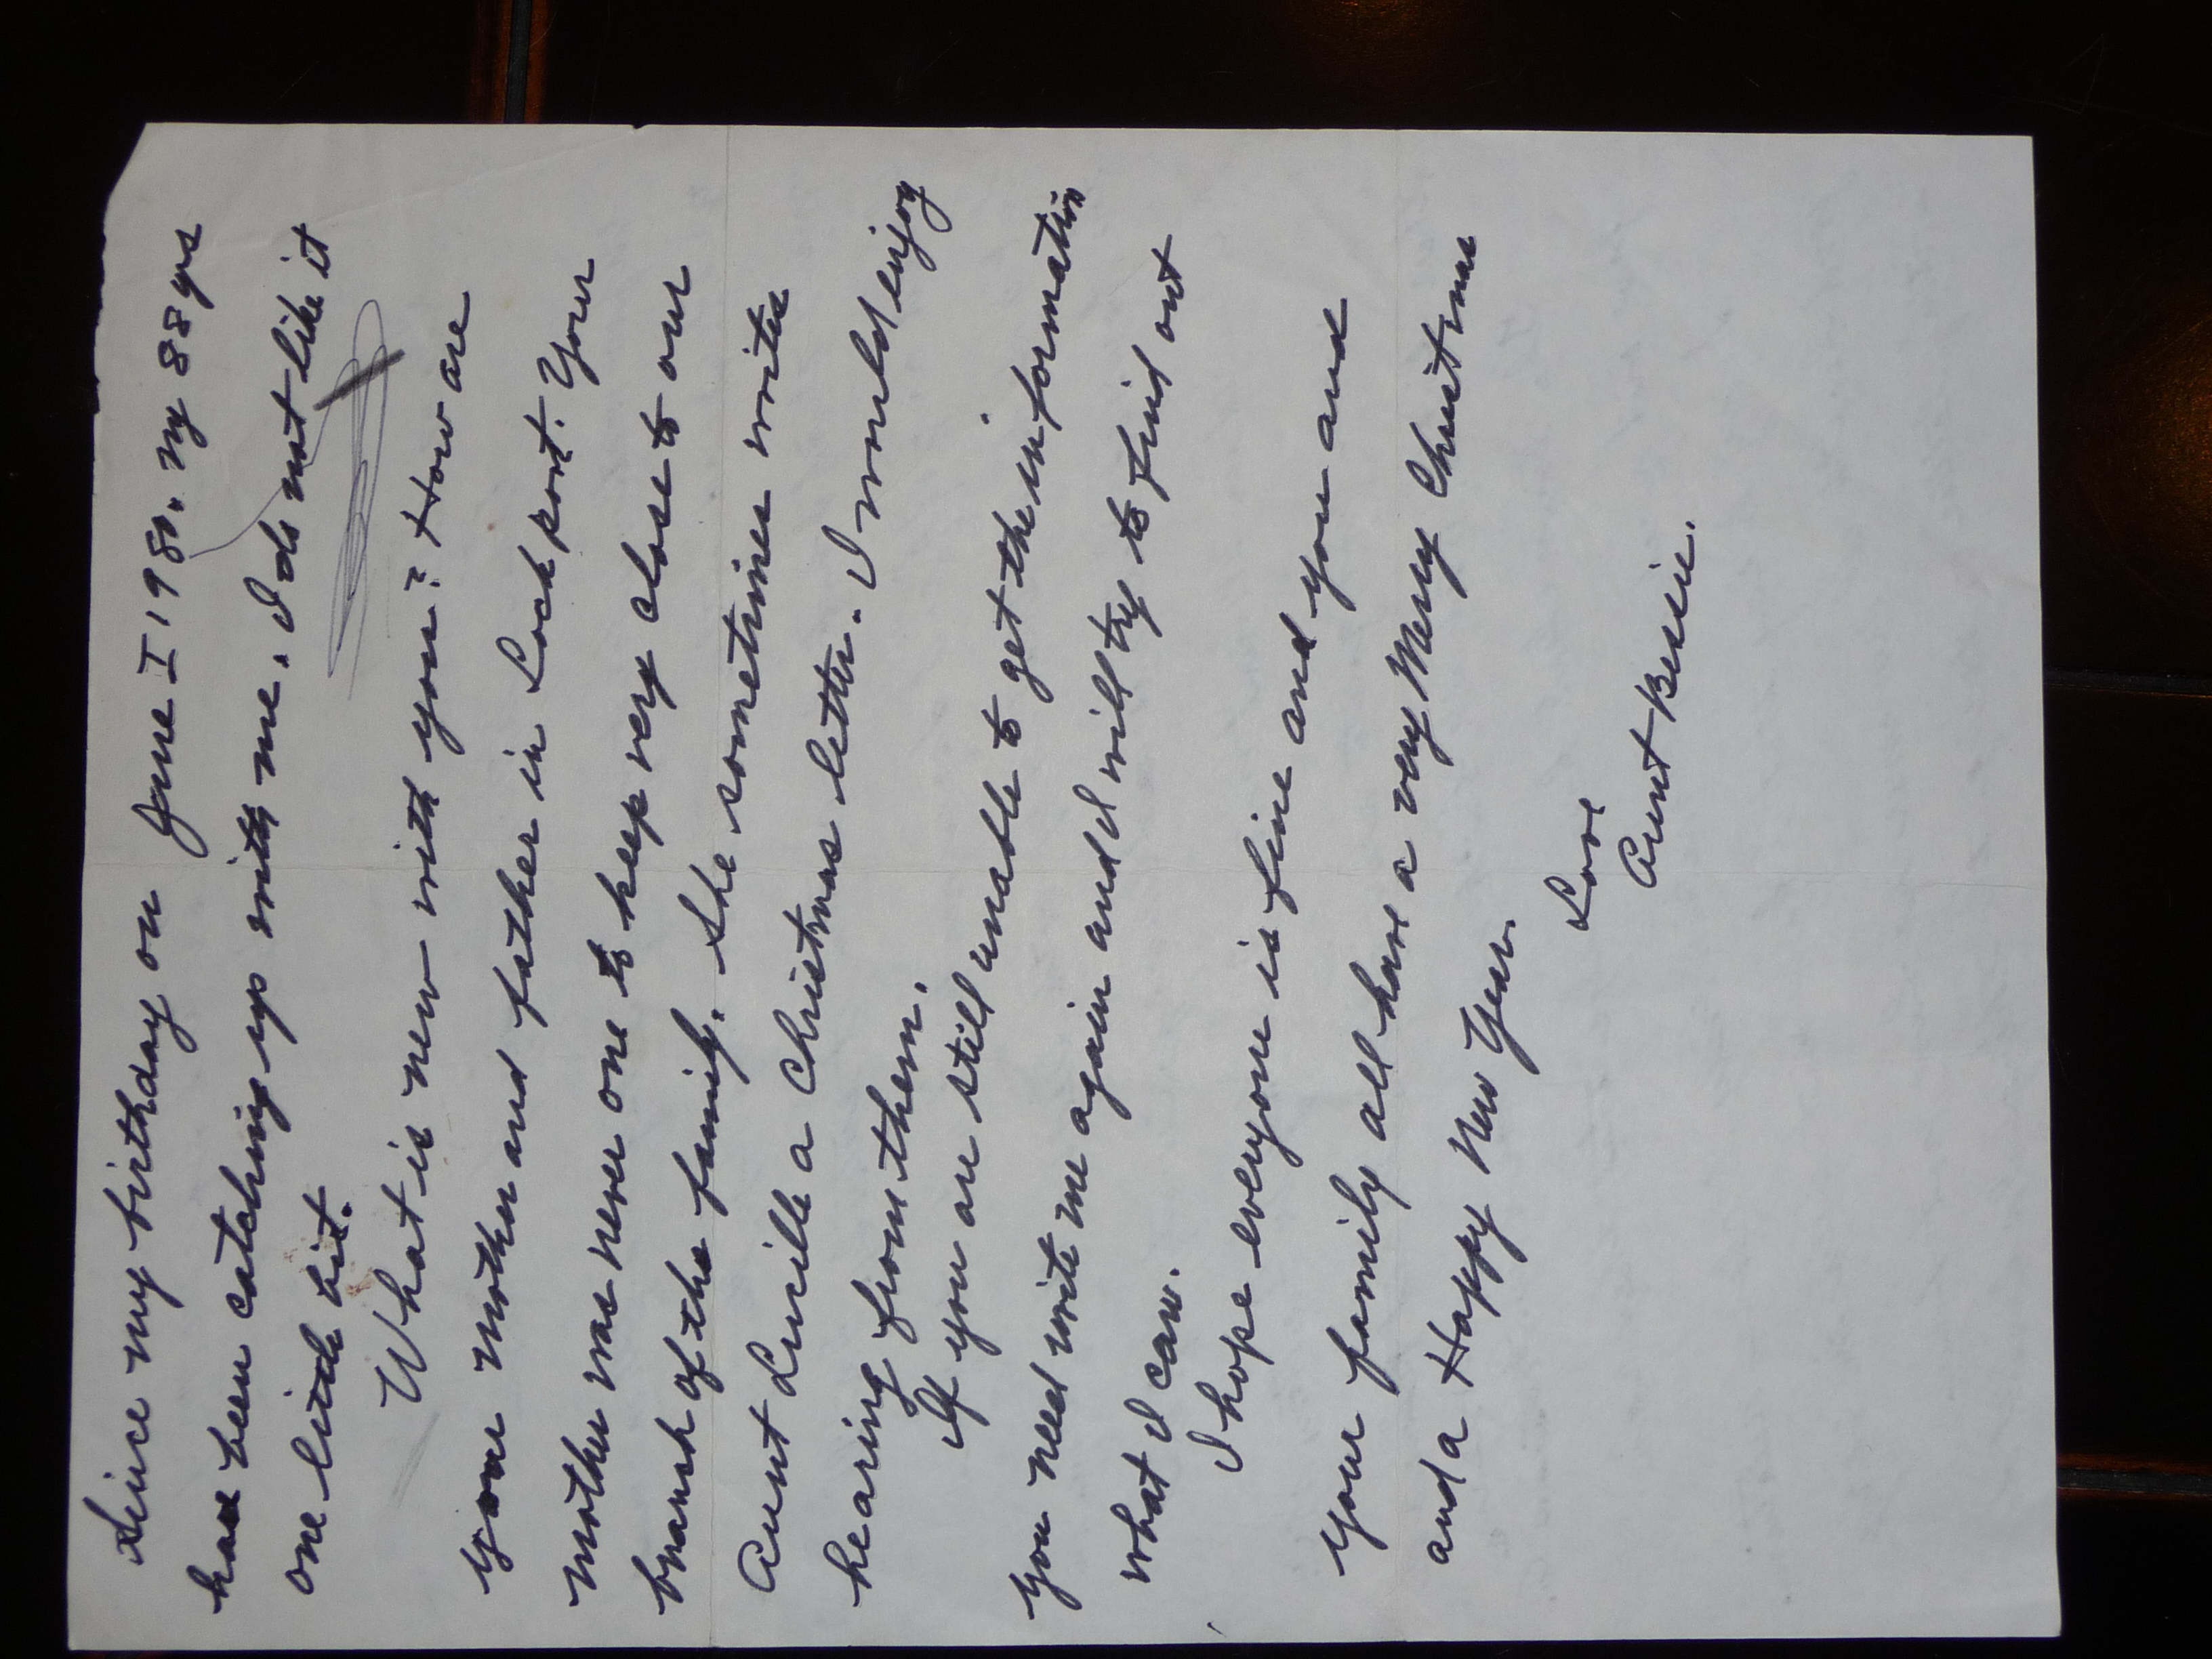 Since my birthday on June I 1980. my 88 yrs
has been catching up with me. I do not like it
one little bit.
What is new with you? How are
your mother and father in Lockport. Your
mother was never one to keep very close to our
branch of the family. She sometimes writes
Aunt Lucille a Christmas letter. I would enjoy
hearing from them.
If you are still unable to get the information
you need write me again and I will try to find out
what I can.
I hope everyone is fine and you and
your family all have a very Merry Christmas
and a Happy New Year.
Love
Aunt Bessie.